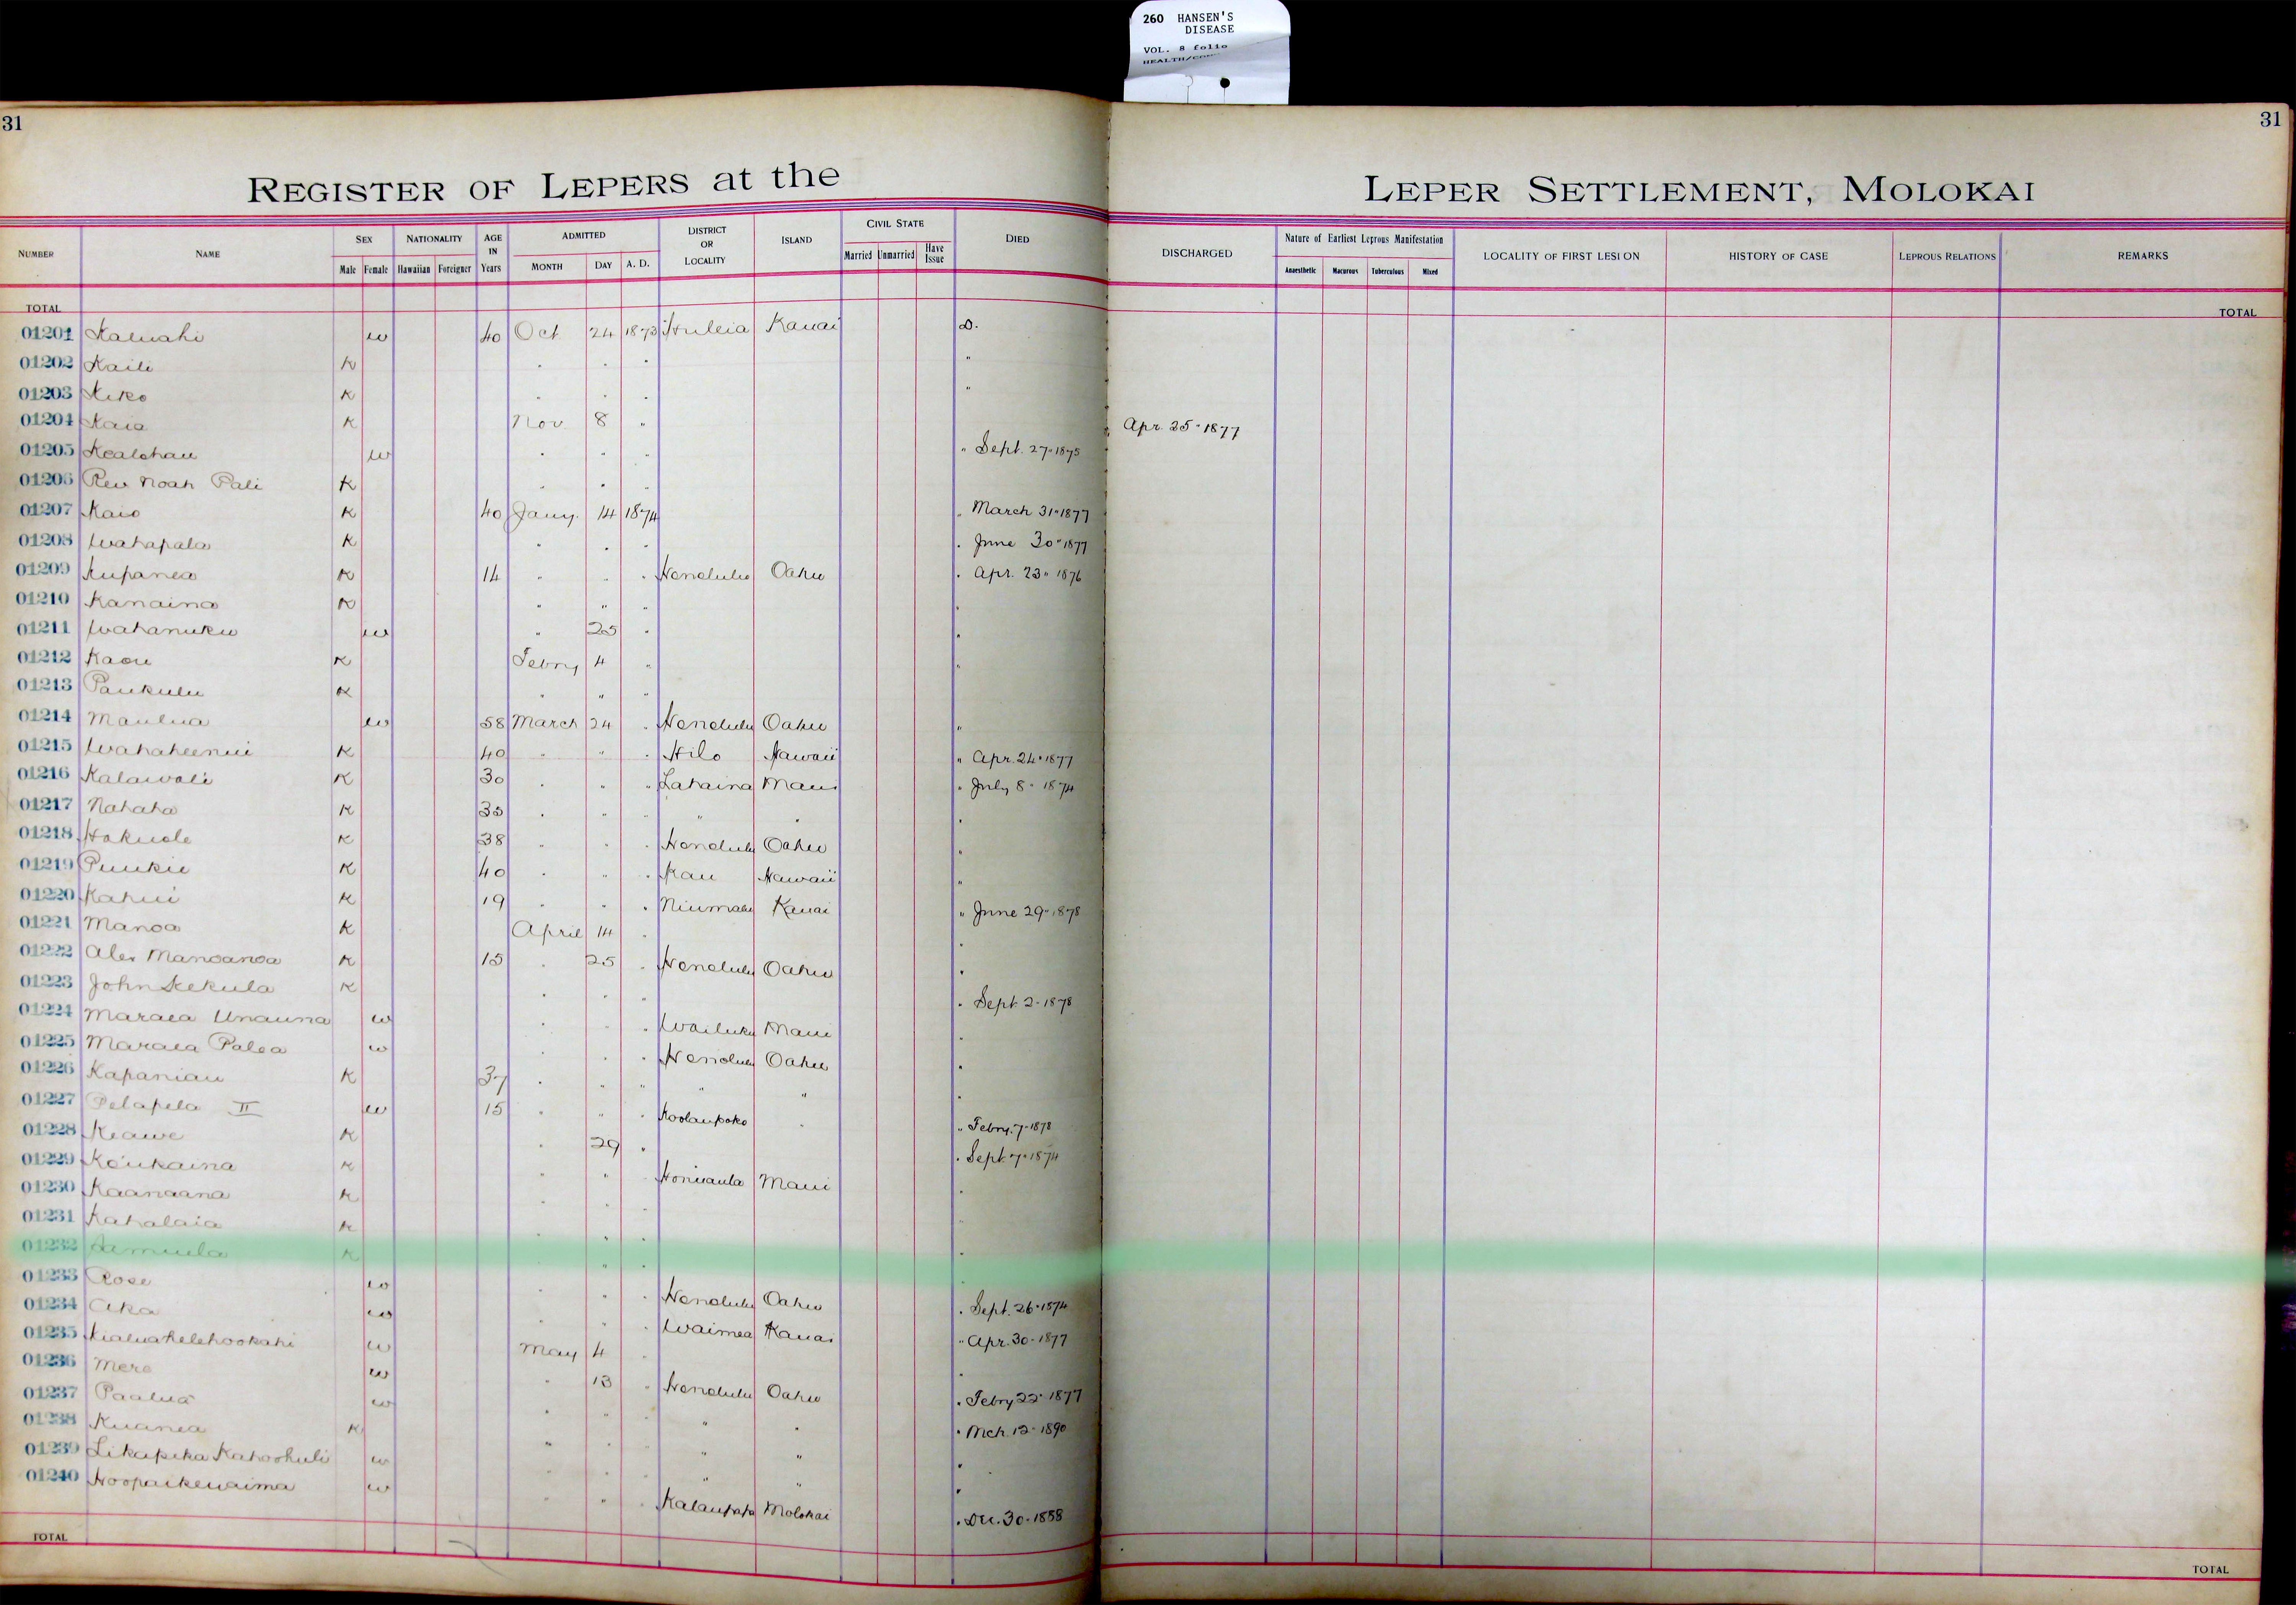 260 HANSEN'S
DISEASE
VOL. 8 folio
31
31
REGISTER OF LEPERS at the
LEPER SETTLEMENT, MOLOKAI
NUMBER NAME SEX NATIONALITY AGE IN Years ADMITTED DISTRICT OR LOCALITY ISLAND CIVIL STATE DIED DISCHARGED Nature of Earliest Leprous Manifestation LOCALITY OF FIRST LESION HISTORY OF CASE LEPROUS RELATIONS REMARKS
Male Female Hawaiian Foreigner MONTH DAY A. D. Married Unmarried Have Issue Anaesthetic Macurous Tuberculous Mixed
TOTAL TOTAL
01201 Kaluahi w 40 Oct 24 1873 Huleia Kauai D.
01202 Kaili K " " " "
01203 Kiko K " " " "
01204 Kaia K Nov 8 " Apr. 25" 1877
01205 Kealohau w " " " " Sept. 27" 1875
01206 Rev Noah Pali K " " "
01207 Kaio K 40 Jany. 14 1874 " March 31" 1877
01208 Wahapala K " " " " June 30" 1877
01209 Kupanea K 14 " " " Honolulu Oahu " Apr. 23" 1876
01210 Kanaina K " " " "
01211 Wahanuku w " 25 " "
01212 Kaou K Febry 4 " "
01213 Paukulu K " " "
01214 Maulua w 58 March 24 " Honolulu Oahu "
01215 Wahaheenui K 40 " " " Hilo Hawaii " Apr. 24" 1877
01216 Kalawali K 30 " " " Lahaina Maui " July 8" 1874
01217 Nahaha K 35 " " " " " "
01218 Hokuole K 38 " " " Honolulu Oahu "
01219 Puukii K 40 " " " Kau Hawaii "
01220 Kahui K 19 " " " Niumalu Kauai " June 29" 1878
01221 Manoa K April 14 " "
01222 Alex Manoanoa K 15 " 25 " Honolulu Oahu "
01223 John Kekula K " " " " Sept. 2" 1878
01224 Maraea Unauna w " " " Wailuku Maui "
01225 Maraea Palea w " " " Honolulu Oahu "
01226 Kapaniau K 37 " " " " " "
01227 Pelapela II w 15 " " " Koolaupoko " " Febry. 7" 1878
01228 Keawe K " 29 " " Sept. 7" 1874
01229 Koukaina K " " " Honuaula Maui "
01230 Kaanaana K " " "
01231 Kahalaia K " " " "
01232 Samuela K " "
01233 Rose w " " " Honolulu Oahu " Sept. 26" 1874
01234 Aka w " " " Waimea Kauai " Apr. 30" 1877
01235 Kialuahelehookahi w May 4 " "
01236 Mere w " 13 " Honolulu Oahu " Febry 22" 1877
01237 Paalua w " " " " " " Mch. 12" 1890
01238 Kuanea K " " " " " "
01239 Likapeka Kahoohuli w " " " " " "
01240 Hoopaikewaima w " " " Kalaupapa Molokai " Dec. 30" 1888
TOTAL TOTAL